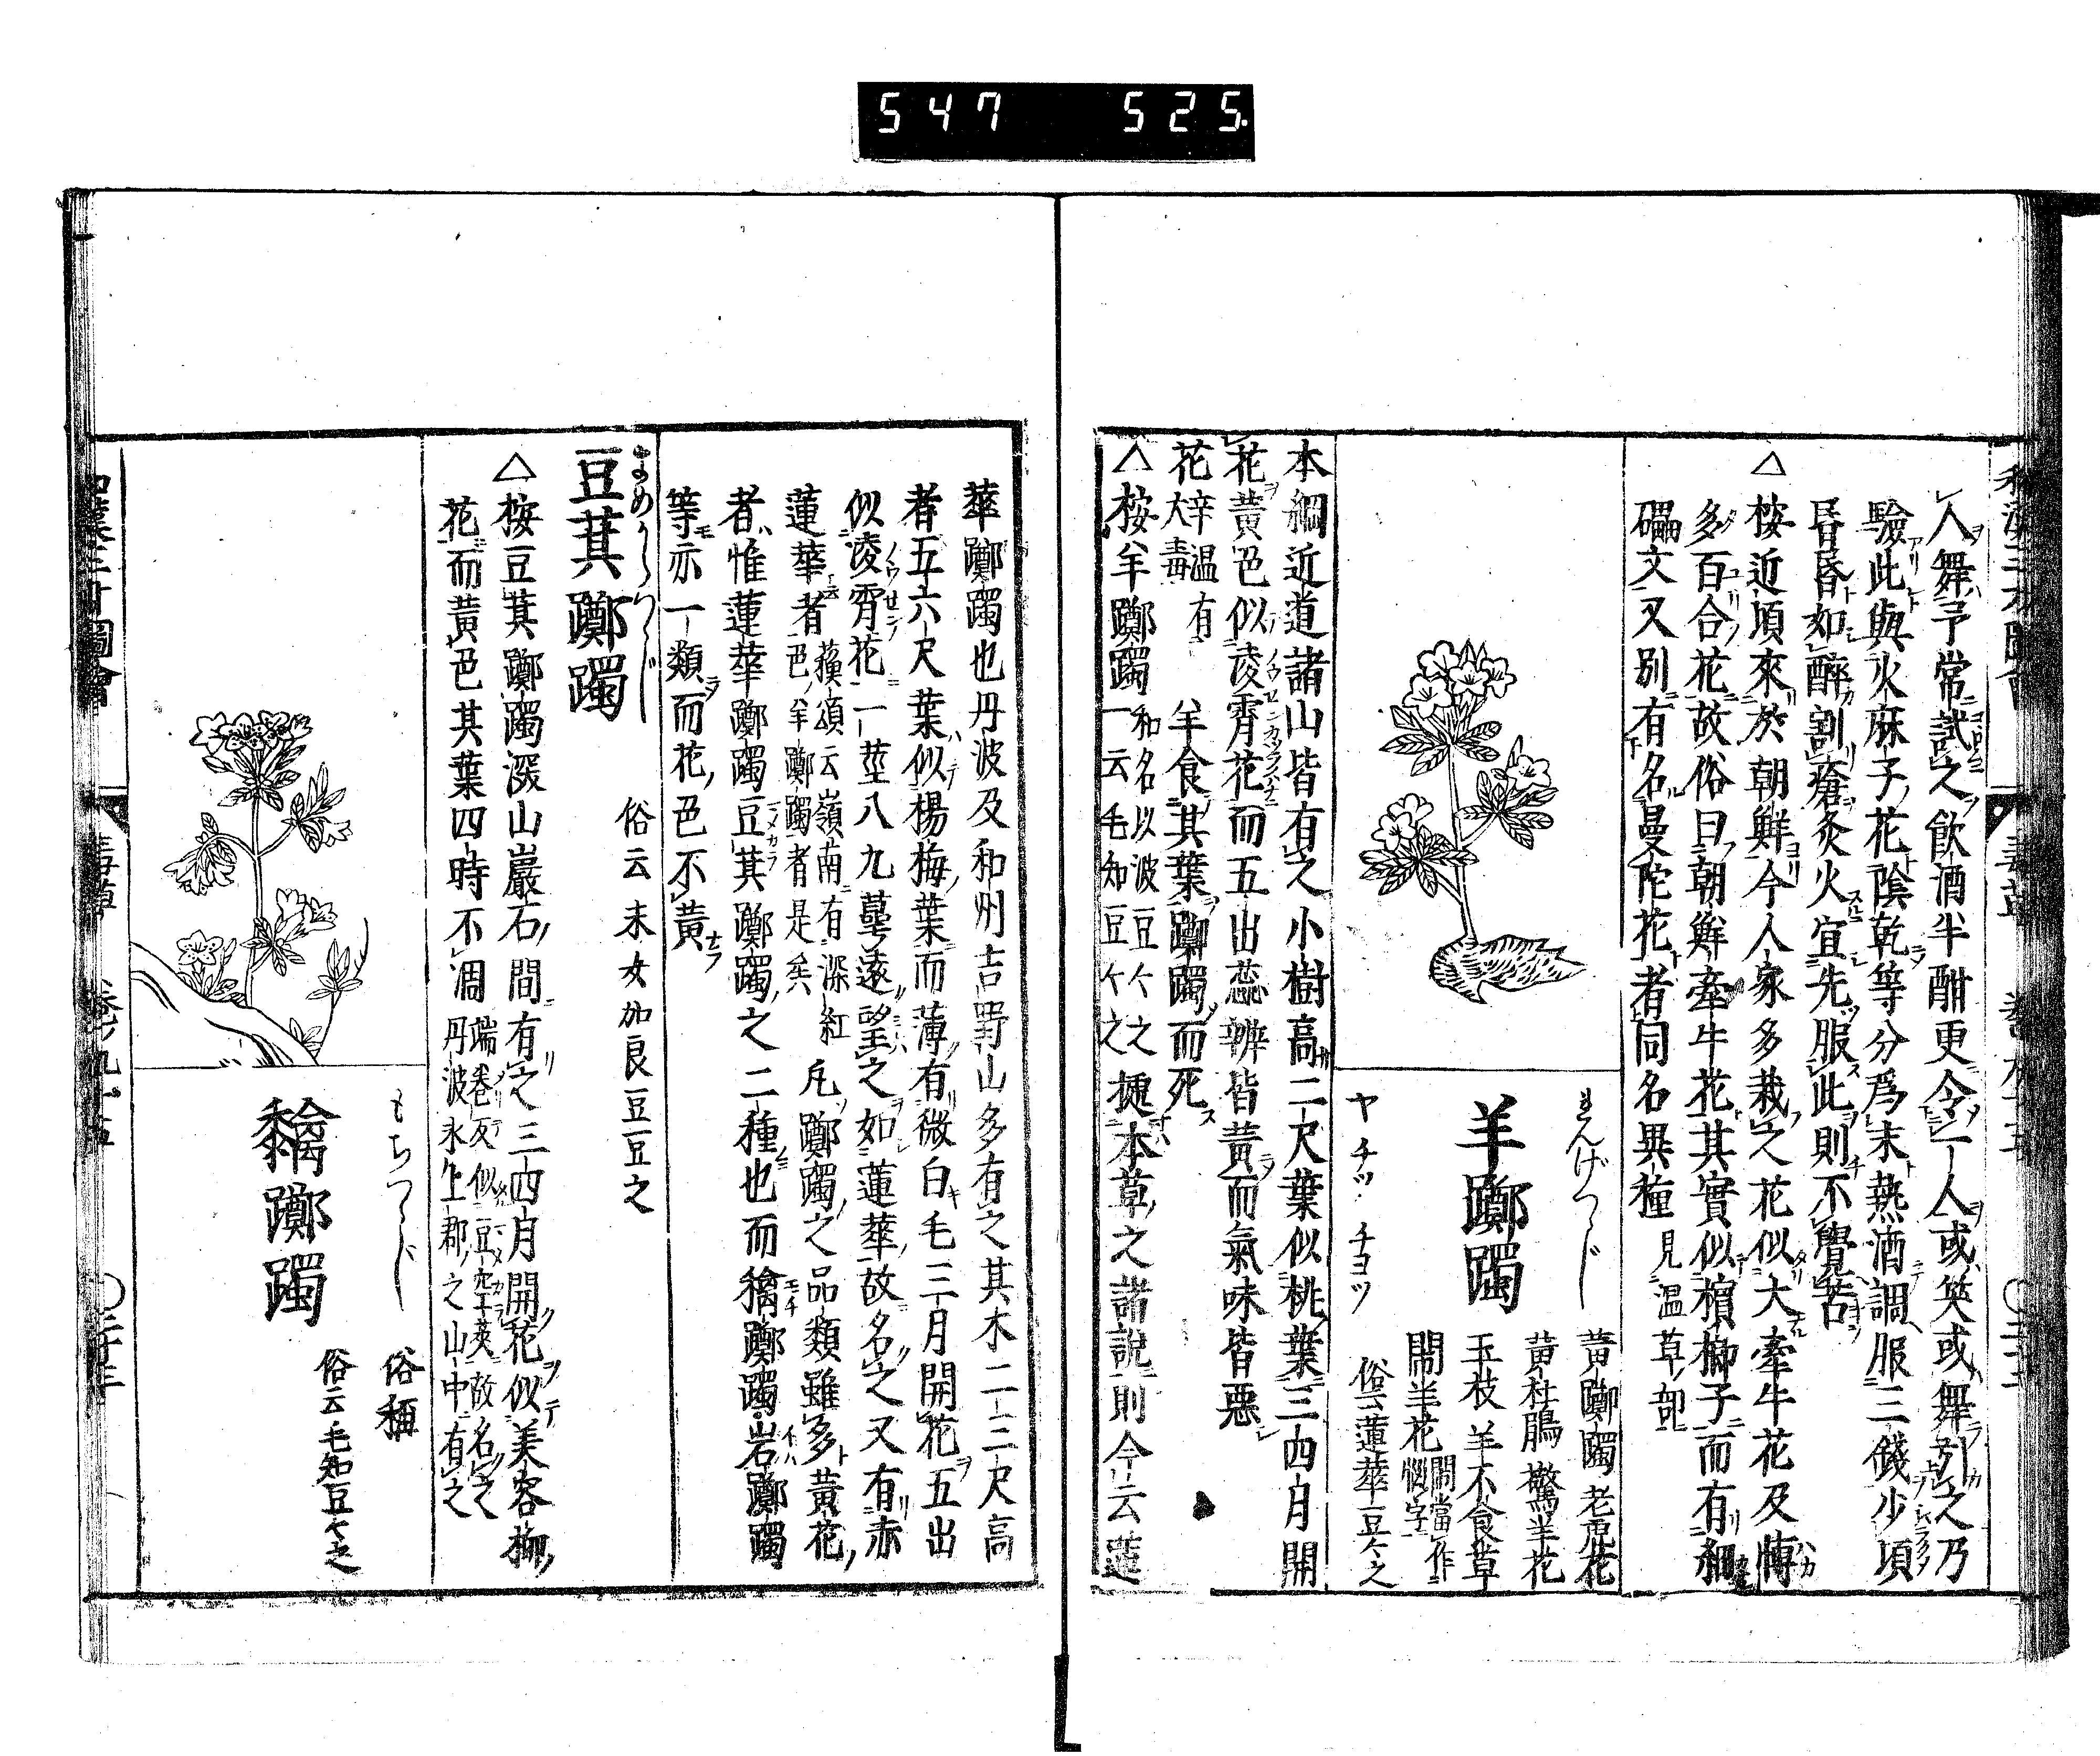 547 525.
人舞予常試之飲酒半酣更令一人或笑或舞引之乃
驗此與火麻子花陰乾等分爲末熱酒調服三錢少頃
昏昏如醉割瘡灸火宜先服此則不覺苦
△按近頃來於朝鮮今人家多栽之花似大牽牛花及博
多百合花故俗曰朝鮮牽牛花其實似檳榔子而有細
礧文又別有名曼陀花者同名異種見温草部
羊躑躅
れんげつゝじ
ヤチッ チヨツ
黃躑躅 老虎花
黃杜鵑 驚羊花
玉枝 羊不食草
閙羊花 閙當作惱字
俗云蓮華豆々之
本綱近道諸山皆有之小樹高二尺葉似桃葉三四月開
花黃色似凌霄花而五出蕊瓣皆黃而氣味皆惡
花 辛温有大毒 羊食其葉躑躅而死
△按羊躑躅 和名以波豆々之一云毛知豆々之 據本草之諸說則今云蓮
華躑躅也丹波及和州吉野山多有之其木二三尺高
者五六尺葉似楊梅葉而薄有微白毛三月開花五出
似凌霄花一莖八九萼遠望之如蓮華故名之又有赤
蓮華者 蘓頌云嶺南有深紅色羊躑躅者是矣 凡躑躅之品類雖多黃花
者惟蓮華躑躅豆萁躑躅之二種也而黐躑躅岩躑躅
等亦一類而花色不黃
豆萁躑躅
まめがらつゝじ
俗云末女加良豆豆之
△按豆萁躑躅深山巖石間有之三四月開花似美容柳
花而黃色其葉四時不凋 端卷反似豆空莢故名之丹波氷上郡之山中有之
黐躑躅
もちつゝじ
俗稱
俗云毛知豆々之
和漢三才圖會 毒草 卷九十五